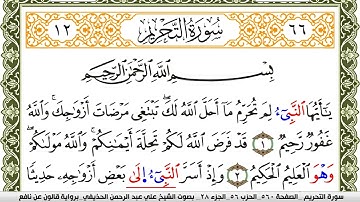 ٦٦ سُورَةُ التَّحْرِيمِ ١٢
بِسْمِ اللَّهِ الرَّحْمَٰنِ الرَّحِيمِ
يَٰٓأَيُّهَا النَّبِيٓءُ لِمَ تُحَرِّمُ مَآ أَحَلَّ اللَّهُ لَكَ تَبْتَغِي مَرْضَاتَ أَزْوَٰجِكَ وَاللَّهُ
غَفُورٌ رَّحِيمٌ ١ قَدْ فَرَضَ اللَّهُ لَكُمْ تَحِلَّةَ أَيْمَٰنِكُمْ وَاللَّهُ مَوْلَىٰكُمْ
وَهْوَ الْعَلِيمُ الْحَكِيمُ ٢ وَإِذْ أَسَرَّ النَّبِيٓءُ إِلَىٰ بَعْضِ أَزْوَٰجِهِ حَدِيثًا
سورة التحريم الصفحة ٥٦٠ الحزب ٥٦ الجزء ٢٨ بصوت الشيخ علي عبد الرحمن الحذيفي برواية قالون عن نافع